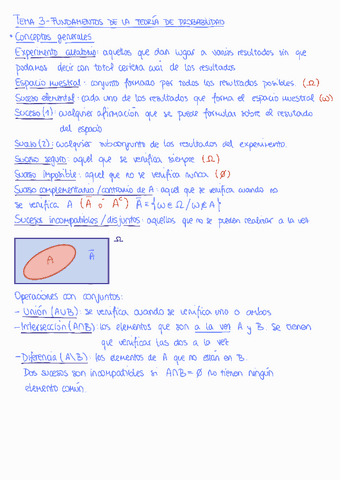 TEMA 3-FUNDAMENTOS DE LA TEORÍA DE PROBABILIDAD
* Conceptos generales
Experimento aleatorio: aquellos que dan lugar a varios resultados sin que
podamos decir con total certeza cual de los resultados
Espacio muestral: conjunto formado por todos los resultados posibles. (Ω)
Suceso elemental: cada uno de los resultados que forma el espacio muestral (ω)
Suceso (1): cualquier afirmación que se puede formular sobre el resultado
del espacio
Suceso (2): cualquier subconjunto de los resultados del experimento.
Suceso seguro: aquel que se verifica siempre (Ω)
Suceso imposible: aquel que no se verifica nunca (Ø)
Suceso complementario/contrario de A: aquel que se verifica cuando no
se verifica A (Ā ó Aᶜ) Ā = {ω ∈ Ω / ω ∉ A}
Sucesos incompatibles/disjuntos: aquellos que no se pueden realizar a la vez
Ω
A
Ā
Operaciones con conjuntos:
- Unión (A∪B): se verifica cuando se verifica uno o ambos
- Intersección (A∩B): los elementos que son a la vez A y B. Se tienen
que verificar las dos a la vez
- Diferencia (A\B): los elementos de A que no están en B.
Dos sucesos son incompatibles si A∩B = Ø no tienen ningún
elemento común.